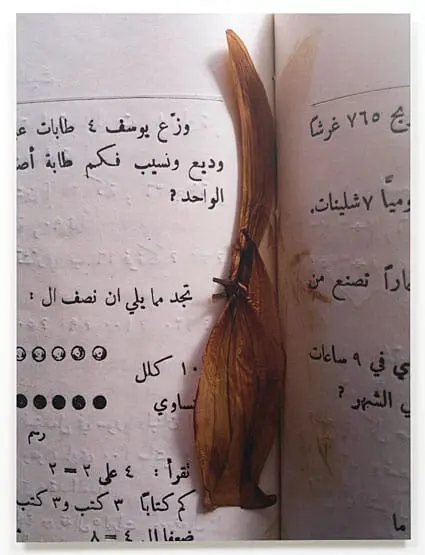 ٧٦٥ غرشاً
٧ شلينات.
تصنع من
في ٩ ساعات
الشهر ؟
ما
وزّع يوسف ٤ طابات
وديع ونسيب فكم طابة
الواحد ؟
تجد مما يلي ان نصف ال :
١٠ كلل
تساوي
رسم
تقرأ : ٤ على ٢ = ٢
كم كتاباً ٣ كتب و٣ كتب
ضعفا ال ٤ = ٨